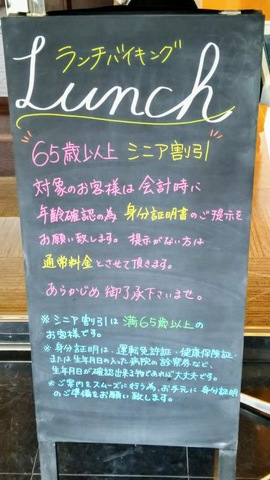 ランチバイキング
Lunch
65歳以上 シニア割引
対象のお客様は会計時に
年齢確認の為 身分証明書のご提示を
お願い致します。提示がない方は
通常料金とさせて頂きます。
あらかじめ御了承下さいませ。
※シニア割引は満65歳以上の
お客様です。
※身分証明は、運転免許証・健康保険証・
または生年月日の入った病院の診察券など、
生年月日が確認出来る物であれば大丈夫です。
※ご案内をスムーズに行う為、お手元に身分証明
のご準備をお願い致します。